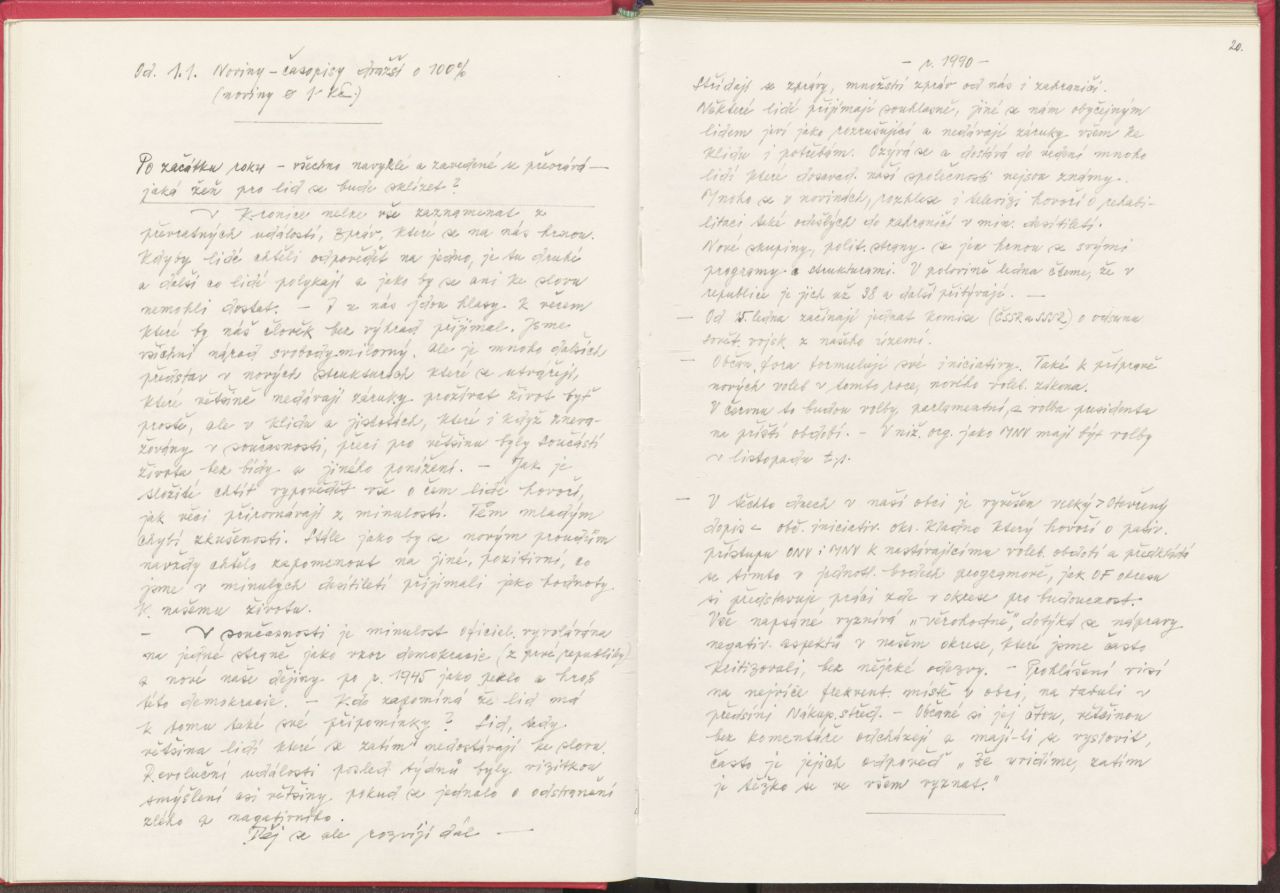 Od. 1.1. Noviny – časopisy dražší o 100%
(noviny o 1 Kč.)
Po začátku roku – všechno navyklé a zavedené se převrává –
jaká žeň pro lid se bude sklízet?
V Kronice nelze vše zaznamenat z
převratných událostí, zpráv, které se na nás hrnou.
Kdyby lidé chtěli odpovědět na jedno, je tu druhé
a další co lidé polykají a jako by se ani ke slovu
nemohli dostat. – I z nás jdou hlasy. K věcem
které by náš člověk bez výhrad přijímal. Jsme
všichni národ svobody-milovný. ale je mnoho dalších
představ v nových strukturách které se utvářejí,
které většině nedávají záruky prožívat život byť
prostě, ale v klidu a jistotách, které i když zneva-
žovány v současnosti, přeci pro většinu byly součástí
života bez bídy a jiného ponížení. – Jak je
složité chtít vypovědět vše o čem lidé hovoří,
jak věci připomínají z minulosti. Těm mladým
chybí zkušenosti. Stále jako by se novým proudům
navždy chtělo zapomenout na jiné, pozitivní, co
jsme v minulých desítiletí přijímali jako hodnoty
k našemu životu.
– V současnosti je minulost oficiel. vyvolávána
na jedné straně jako vzor demokracie (z prvé republiky)
a nové naše dějiny po r. 1945 jako peklo a hrob
této demokracie. – Kdo zapomíná že lid má
k tomu také své připomínky? Lid, tedy
většina lidí které se zatím nedostávají ke slovu.
Revoluční události posled týdnů byly vizitkou
smýšlení asi většiny pokud se jednalo o odstranění
zlého a nagativního.
Děj se ale rozvíjí dál –
20.
– r. 1990 –
Střídají se zprávy, množství zpráv od nás i zahraničí.
Některé lidé přijímají souhlasně, jiné se nám obyčejným
lidem jeví jako rozrušující a nedávají záruky všem ke
klidu i potřebám. Ozývá se a dostává do vedení mnoho
lidí které dosavad. naší společnosti nejsou známy.
Mnoho se v novinách, rozhlase i televizi hovoří o rehabi-
litaci také odešlých do zahraničí v min. desítiletí.
Nové skupiny, polit. strany se jen hrnou se svými
programy a strukturami. V polovině ledna čteme, že v
republice je jich už 38 a další přibývají. –
– Od 15. ledna začínají jednat komise (ČSSR a SSSR) o odsunu
sovět. vojsk z našeho území.
– Občan. fora formulují své iniciativy. Také k přípravě
nových voleb v tomto roce, nového voleb. zákona.
V červnu to budou volby, parlamentní, a volba presidenta
na příští období. – V niž. org. jako MNV mají být volby
v listopadu t.r.
– V těchto dnech v naší obci je vyvěšen velký > Otevřený
dopis < obč. iniciativ. okr. Kladno který hovoří o pasiv.
přístupu ONV i MNV k nastávajícímu voleb. období a předkládá
se tímto v jednotl. bodech programově, jak OF okresu
si představuje práci zde v okrese pro budoucnost.
Vše napsáné vyznívá „věrohodně", dotýká se nápravy
negativ. aspektů v našem okrese, které jsme často
kritizovali, bez nějaké odezvy. – Prohlášení visí
na nejvíce frekvent. místě v obci, na tabuli v
předsíni Nákup. střed. – Občané si jej čtou, většinou
bez komentáře odcházejí a mají-li se vyslovit,
často je jejich odpověď „že uvidíme, zatím
je těžko se ve všem vyznat."